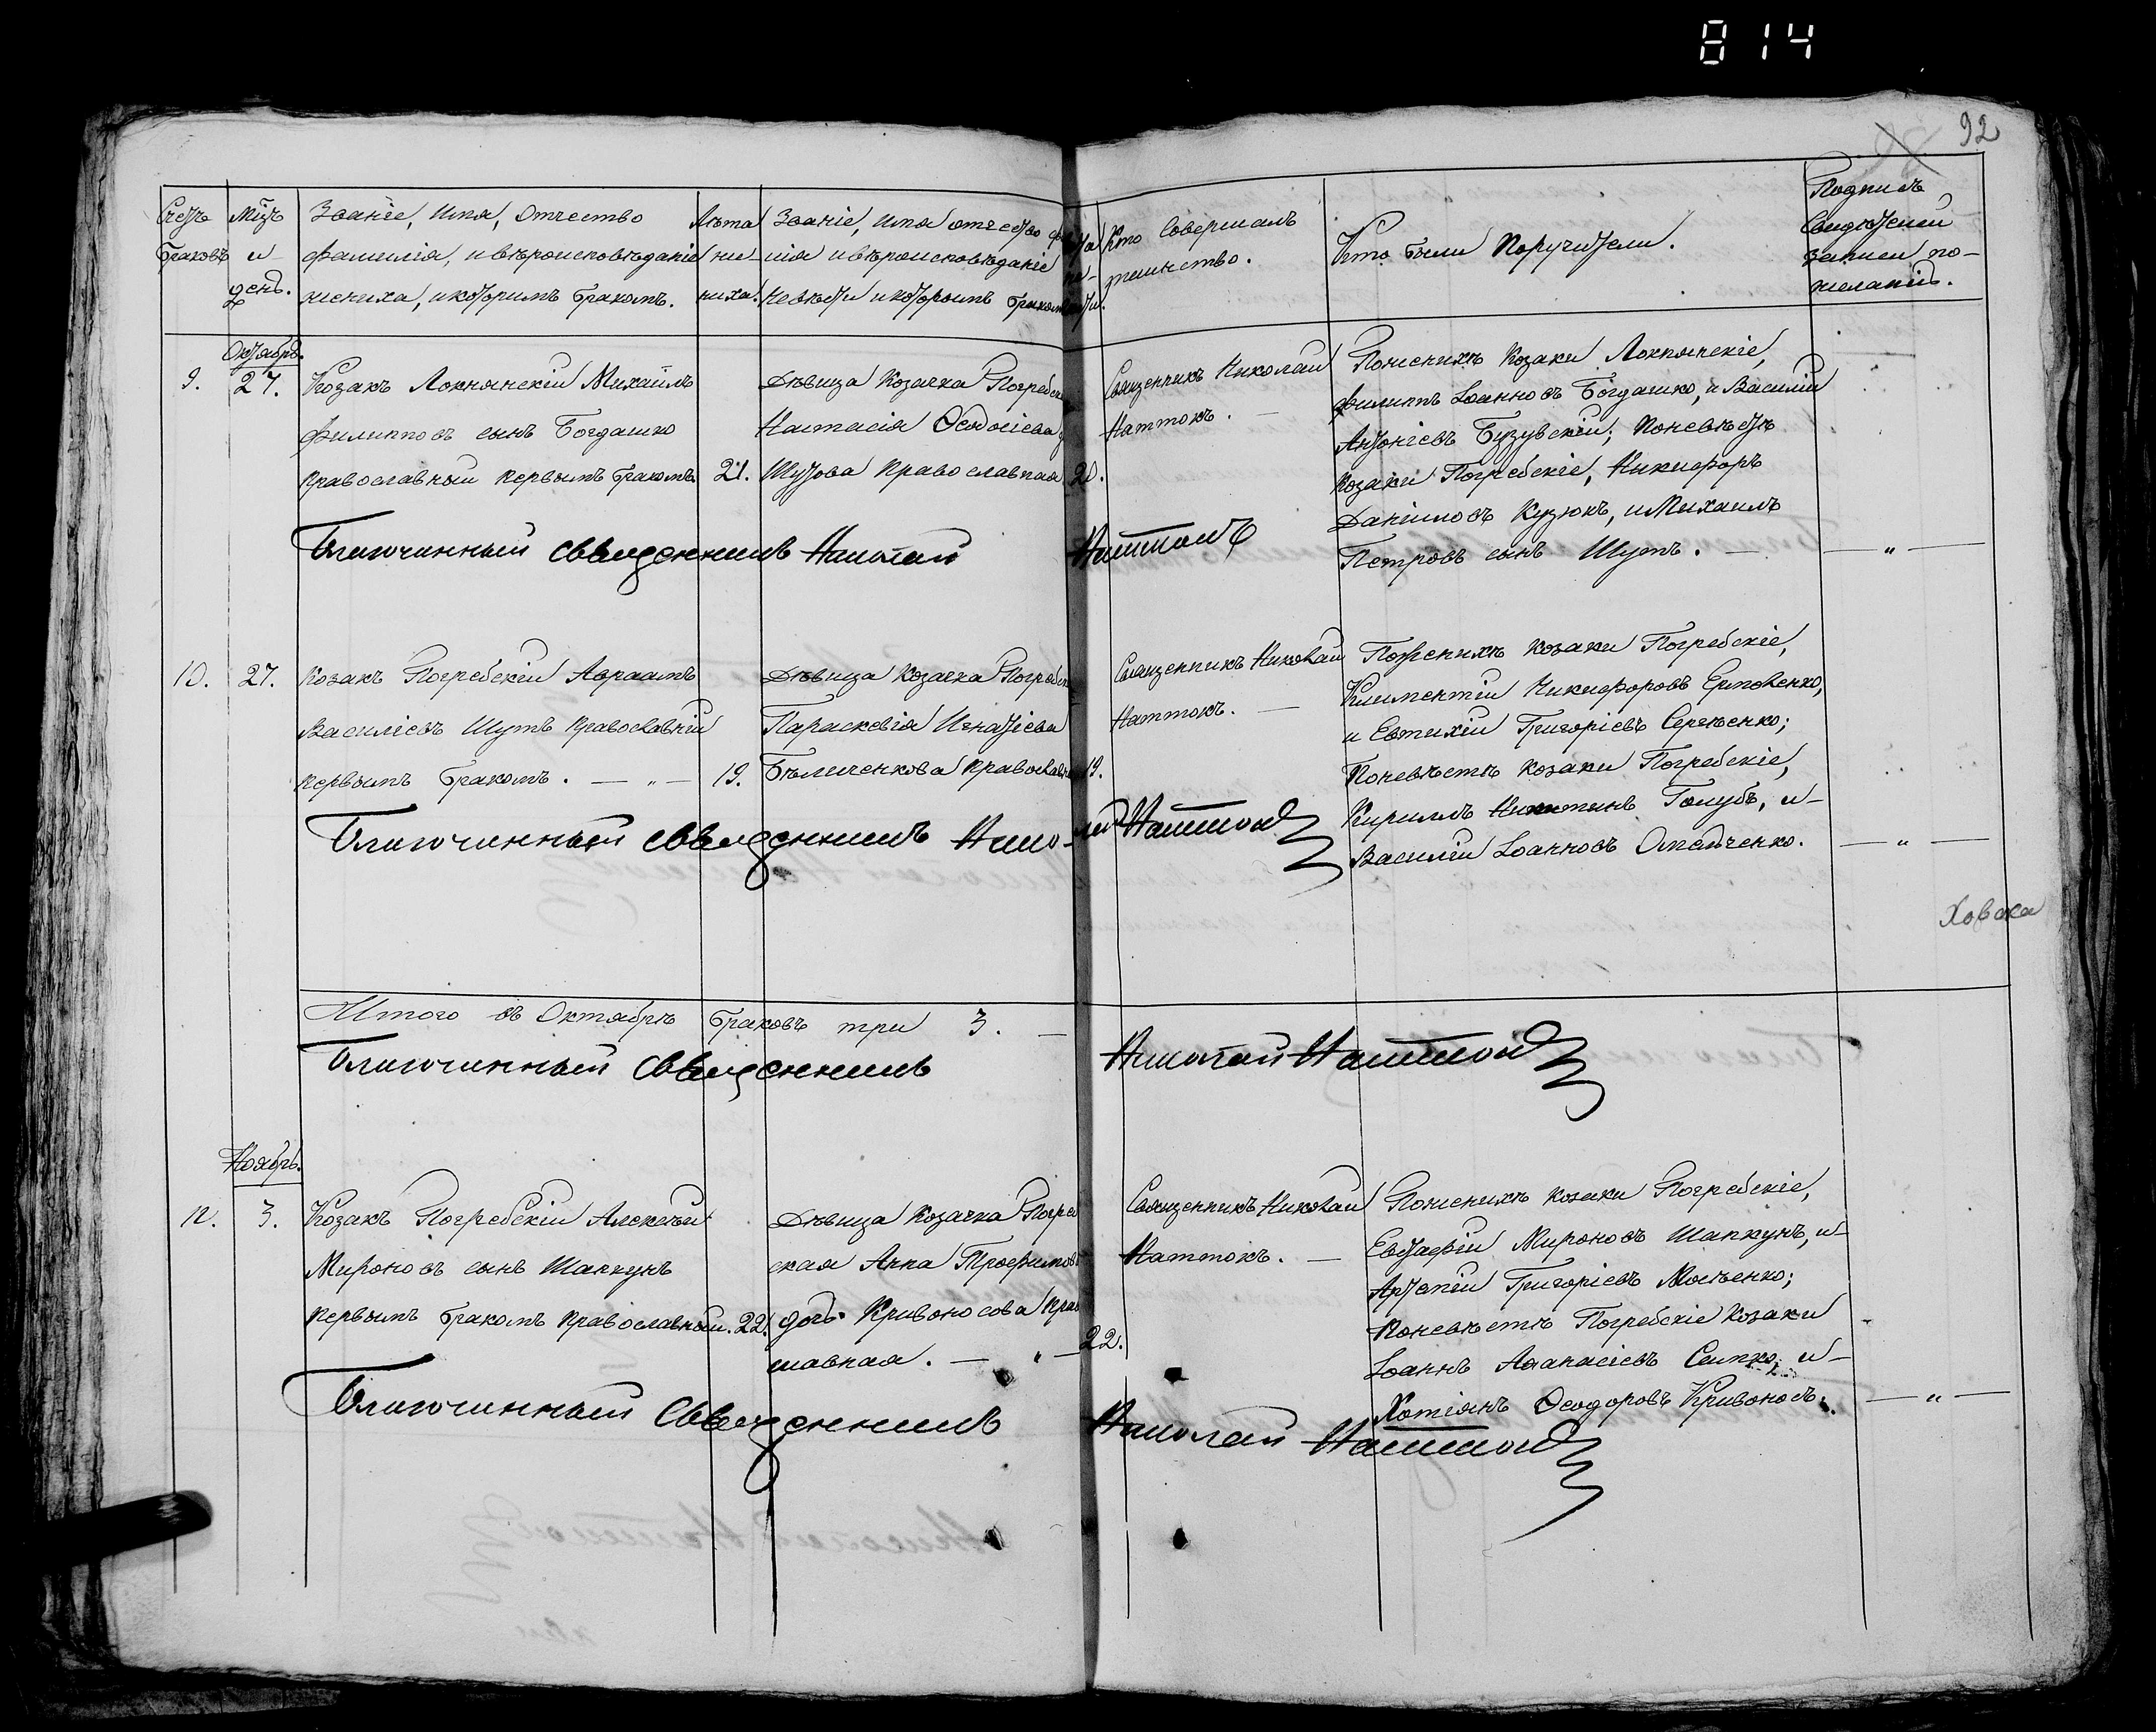 814
92
Счетъ Браковъ
Мцъ и день.
Званіе, Имя, Отчество
фамилія, и вѣроисповѣданіе
жениха, и которимъ бракомъ.
Лѣта
же
ниха.
Званіе, Имя отчество фа
милія и вѣроисповѣданіе
невѣсти и которымъ бракомъ
Кто Совершалъ
таинство.
Кто были Поручители.
Подпись
Свидѣтелей
записи по
желанію.
Октябрь.
9. 27.
Козакъ Локнянскій Михаилъ
Филипповъ сынъ Богдашко
православный первымъ бракомъ 21.
Дѣвица Козачка Погребск
Настасія Ѳеодосіева
Шутова православная 20.
Священникъ Николай
Наттокъ. —
По женихѣ Козаки Локнянскіе,
Филиппъ Іоанновъ Богдашко, и Василій
Антоніевъ Бузувскій; по невѣстѣ
козаки Погребскіе, Никифоръ
Даніиловъ Кузюкъ, и Михаилъ
Петровъ сынъ Шутъ. —
— „ —
Благочинный Священникъ Николай Наттокъ
10. 27.
Козакъ Погребскій Авраамъ
Василіевъ Шутъ православній
первымъ бракомъ. — „ — 19.
Дѣвица Козачка Погребск
Параскевія Игнатіева
Бѣличенкова православн 19.
Священникъ Николай
Наттокъ. —
По женихѣ козаки Погребскіе,
Климентій Никифоровъ Ермоленко,
и Евтихій Григоріевъ Сергѣенко;
По невѣстѣ козаки Погребскіе,
Кириллъ Никитинъ Голубъ, и
Василій Іоанновъ Омельченко.
— „ —
Благочинный Священникъ Николай Наттокъ
Итого въ Октябрѣ браковъ три 3. —
Благочинный Священникъ Николай Наттокъ
Ноябрь.
3.
Козакъ Погребскій Алексѣй
Мироновъ сынъ Шапкунъ
первымъ бракомъ православный. 22.
Дѣвица Козачка Погреб
ская Анна Трофимов
дочь Кривоносова прав
славная. — „ — 22.
Священникъ Николай
Наттокъ. —
По женихѣ козаки Погребскіе,
Евстафій Мироновъ Шапкунъ, и
Артемій Григоріевъ
По невѣстѣ Погребскіе Козаки
Іоаннъ Аѳанасіевъ и
Хотіянъ Ѳеодоровъ Кривоносъ.
— „ —
Благочинный Священникъ Николай Наттокъ